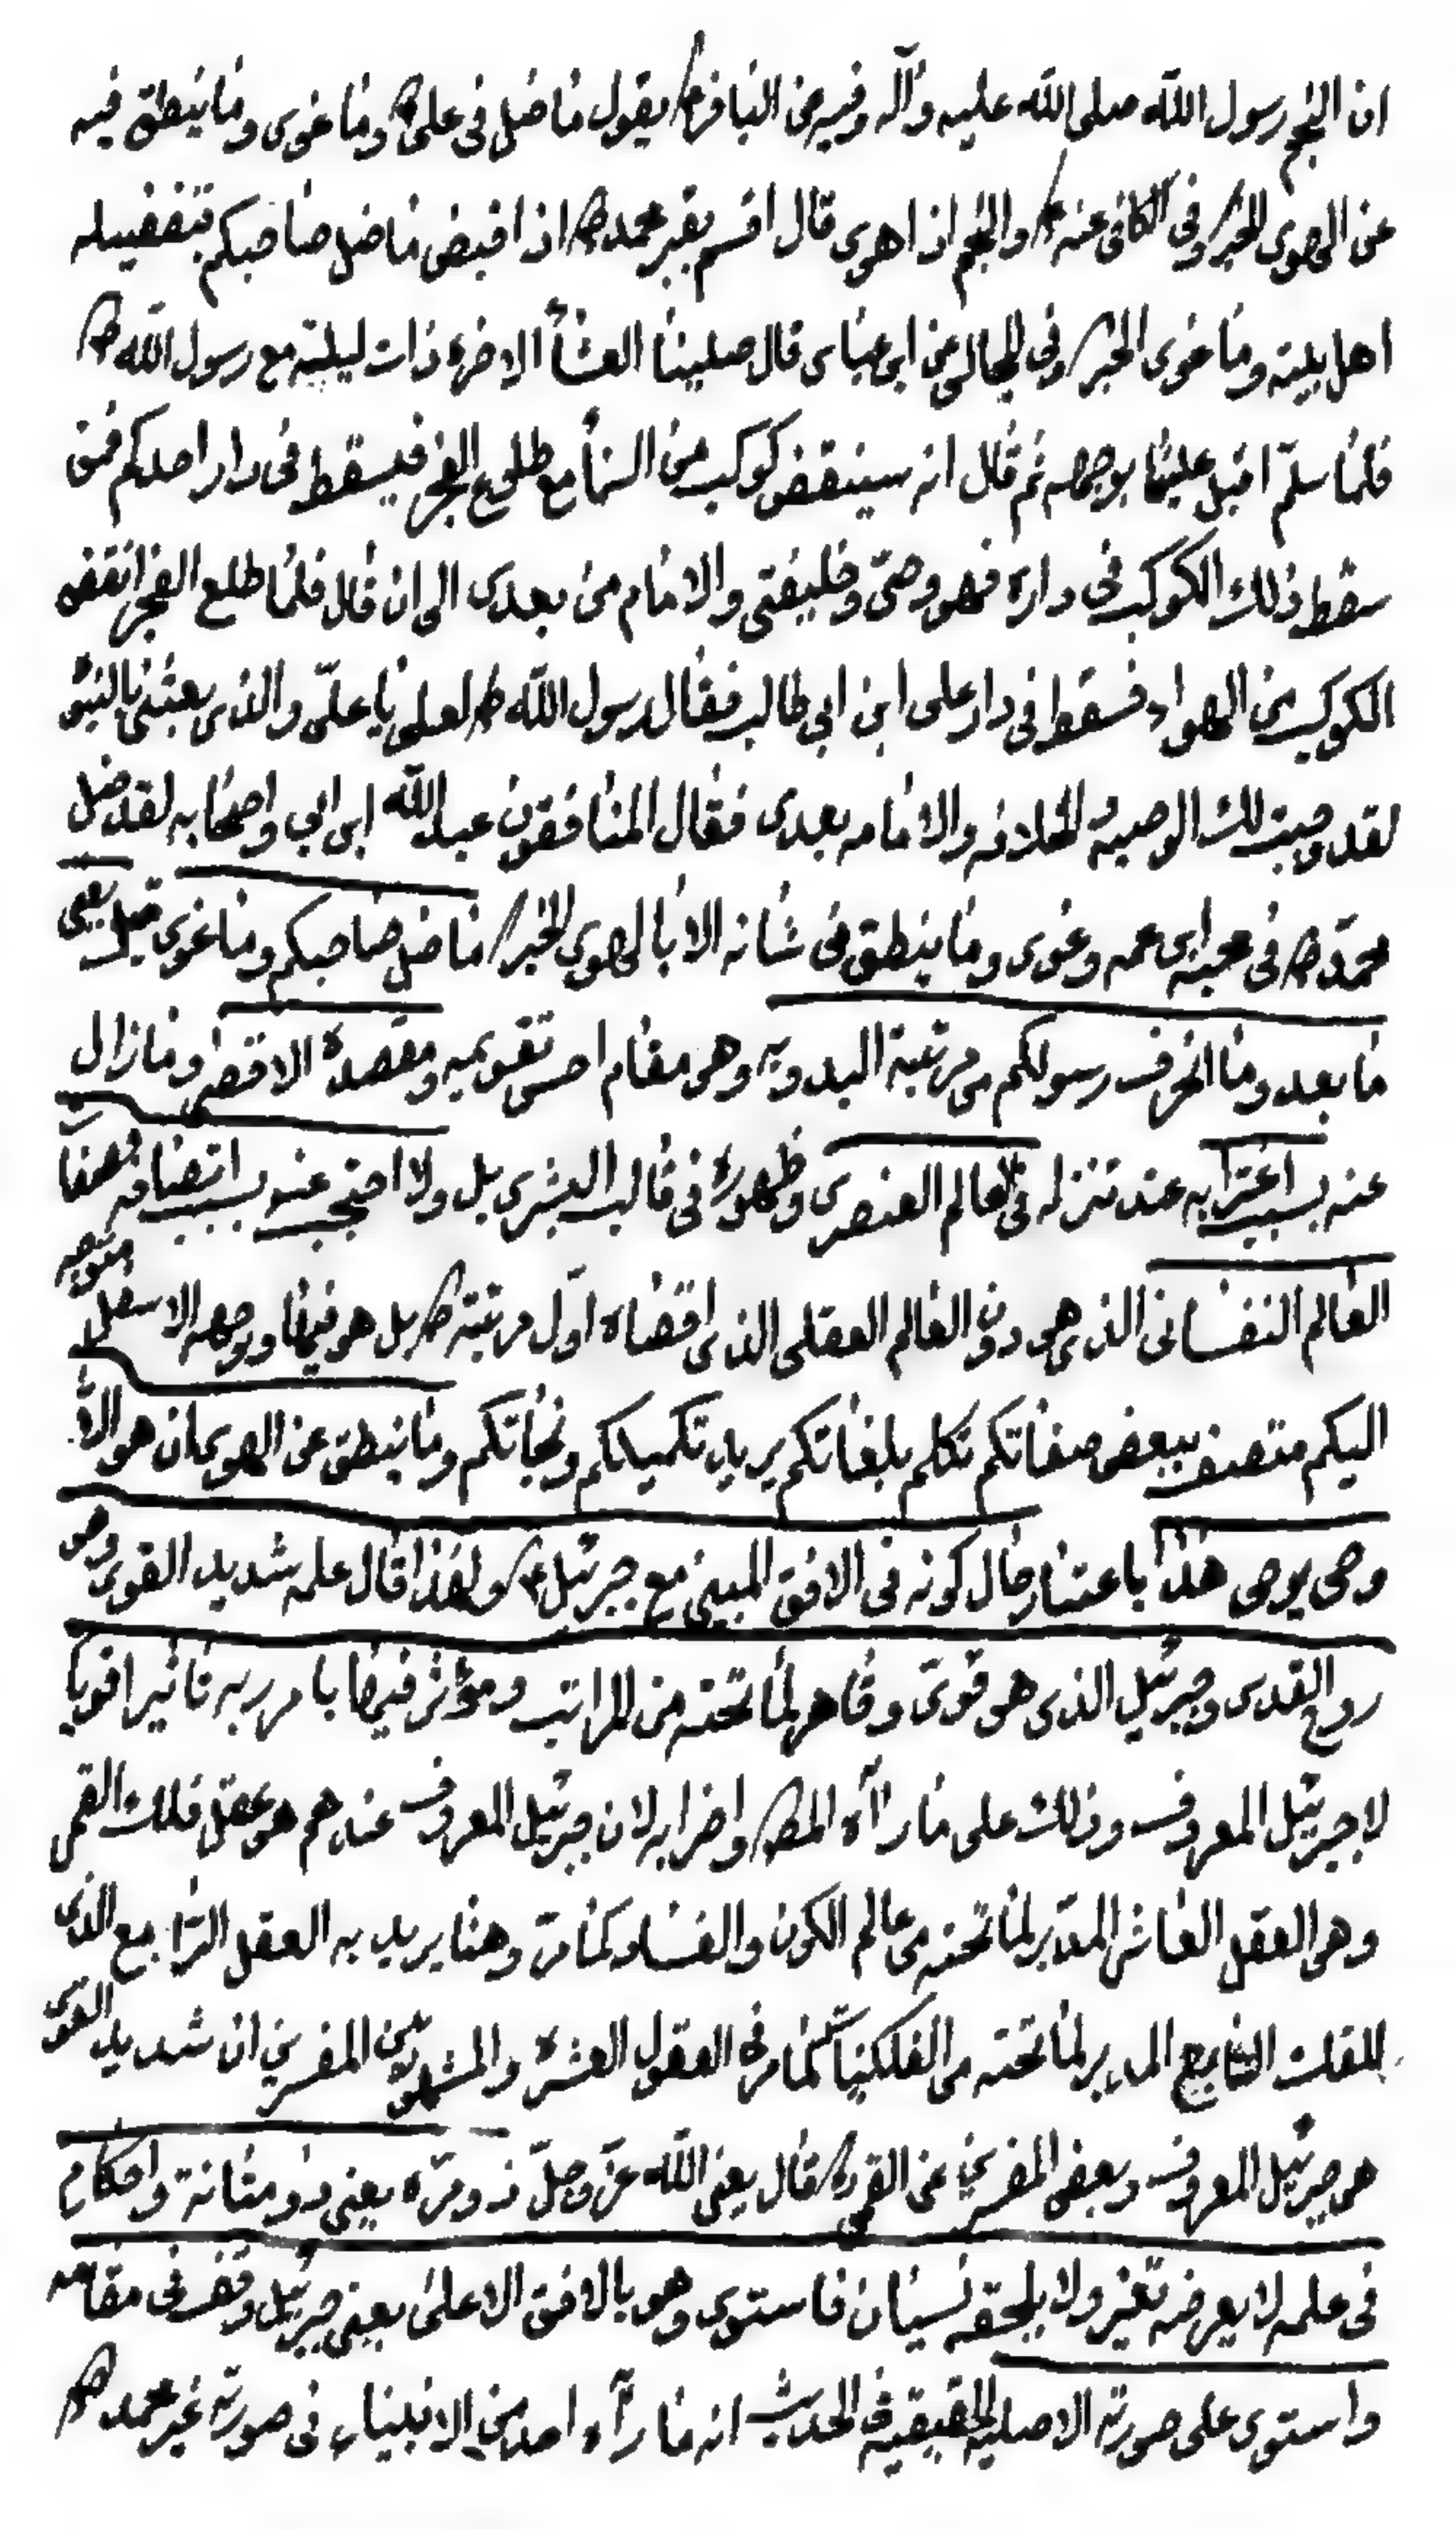 ان النجم رسول الله صلى الله عليه وآله وفيه عن الباقر ع يقول ما ضل فى على ع وما غوى وما ينطق فيه
عن الهوى الخبر وفى الكافى عنه ع والنجم اذا هوى قال اقسم بقبر محمد ص اذا قبض ما ضل صاحبكم بتفضيله
اهل بيته وما غوى الخبر وفى المجالس عن ابن عباس قال صلينا العشاء الاخره ذات ليلة مع رسول الله ص
فلما سلّم اقبل علينا بوجهه ثم قال انه سينقض كوكب من السماء مع طلوع الفجر فيسقط فى دار احدكم فمن
سقط ذلك الكوكب فى داره فهو وصيّ وخليفتى والامام من بعدى الى ان قال فلما طلع الفجر انقض
الكوكب من الهواء فسقط فى دار على ابن ابى طالب فقال رسول الله ص لعلى يا علىّ والذى بعثنى بالنبوّ
لقد وجبت لك الوصيه والخلافه والامامه بعدى فقال المنافقون عبد الله ابن ابى واصحابه لقد ضل
محمّد ص فى محبه ابن عمه وغوى وما ينطق فى شأنه الا بالهوى الخبر ما ضل صاحبكم وما غوى قيل يعنى
ما بعد وما انحرف رسولكم من مرتبة البدويه وهو مقام احسن تقويميه ومقصده الاقصى وما زال
عنه بسبب اغترابه عند تنزله فى العالم العنصرى وظهوره فى قالب البشرى بل ولا احتجب عنه بسبب اتصافه بصفات
العالم النفسانى الذى هى دون العالم العقلى الذى اقتضاه اول مرتبته ص بل هو فيها وبوجهه الاسفل متوجه
اليكم متصف ببعض صفاتكم تكلم بلغاتكم يريد تكميلكم ونجاتكم وما ينطق عن الهوى ان هو الا
وحى يوحى هذا باعتبار حال كونه فى الافق المبين مع جبرئيل ع ولهذا قال علمه شديد القوى وهو
روح القدس وجبرئيل الذى هو قوىّ وقاهر لما تحته من المراتب ومؤثر فيها بامر ربه تاثيرا قويا
لا جبرئيل المعروف وذلك على ما رآه المص واضرابه لان جبرئيل المعروف عندهم هو عقل فلك القمر
وهو العقل العاشر المدبّر لما تحته من عالم الكون والفساد كما مرّ وهنا يريد به العقل الرابع الذى
للفلك السابع المدبر لما تحته من الفلكيات كما مر فى العقول العشره والمشهور بين المفسرين ان شديد القوى
هو جبرئيل المعروف وبعض المفسرين عن القمى قال يعنى الله عزّ وجلّ ذو مرّه يعنى ذو متانة واحكام
فى علمه لا يعرضه تغير ولا يلحقه نسيان فاستوى وهو بالافق الاعلى يعنى جبرئيل وقف فى مقامه
واستوى على صورته الاصليه الحقيقيه فى الحديث انه ما رآه احد من الانبياء فى صورته غير محمد ص